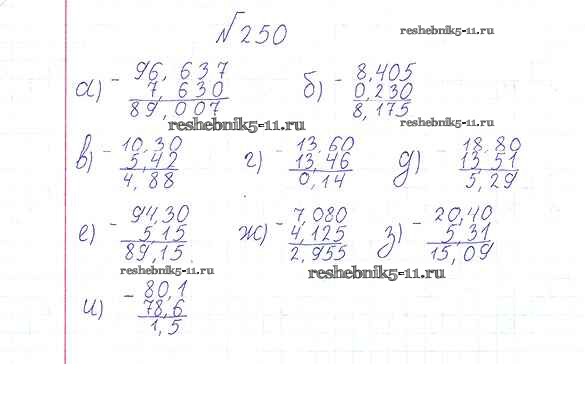 №250
reshebnik5-11.ru
а) - 96,637 7,630 89,007
б) - 8,405 0,230 8,175
reshebnik5-11.ru
reshebnik5-11.ru
в) - 10,30 5,42 4,88
г) - 13,60 13,46 0,14
д) - 18,80 13,51 5,29
е) - 94,30 5,15 89,15
ж) - 7,080 4,125 2,955
з) - 20,40 5,31 15,09
reshebnik5-11.ru
reshebnik5-11.ru
и) - 80,1 78,6 1,5
reshebnik5-11.ru